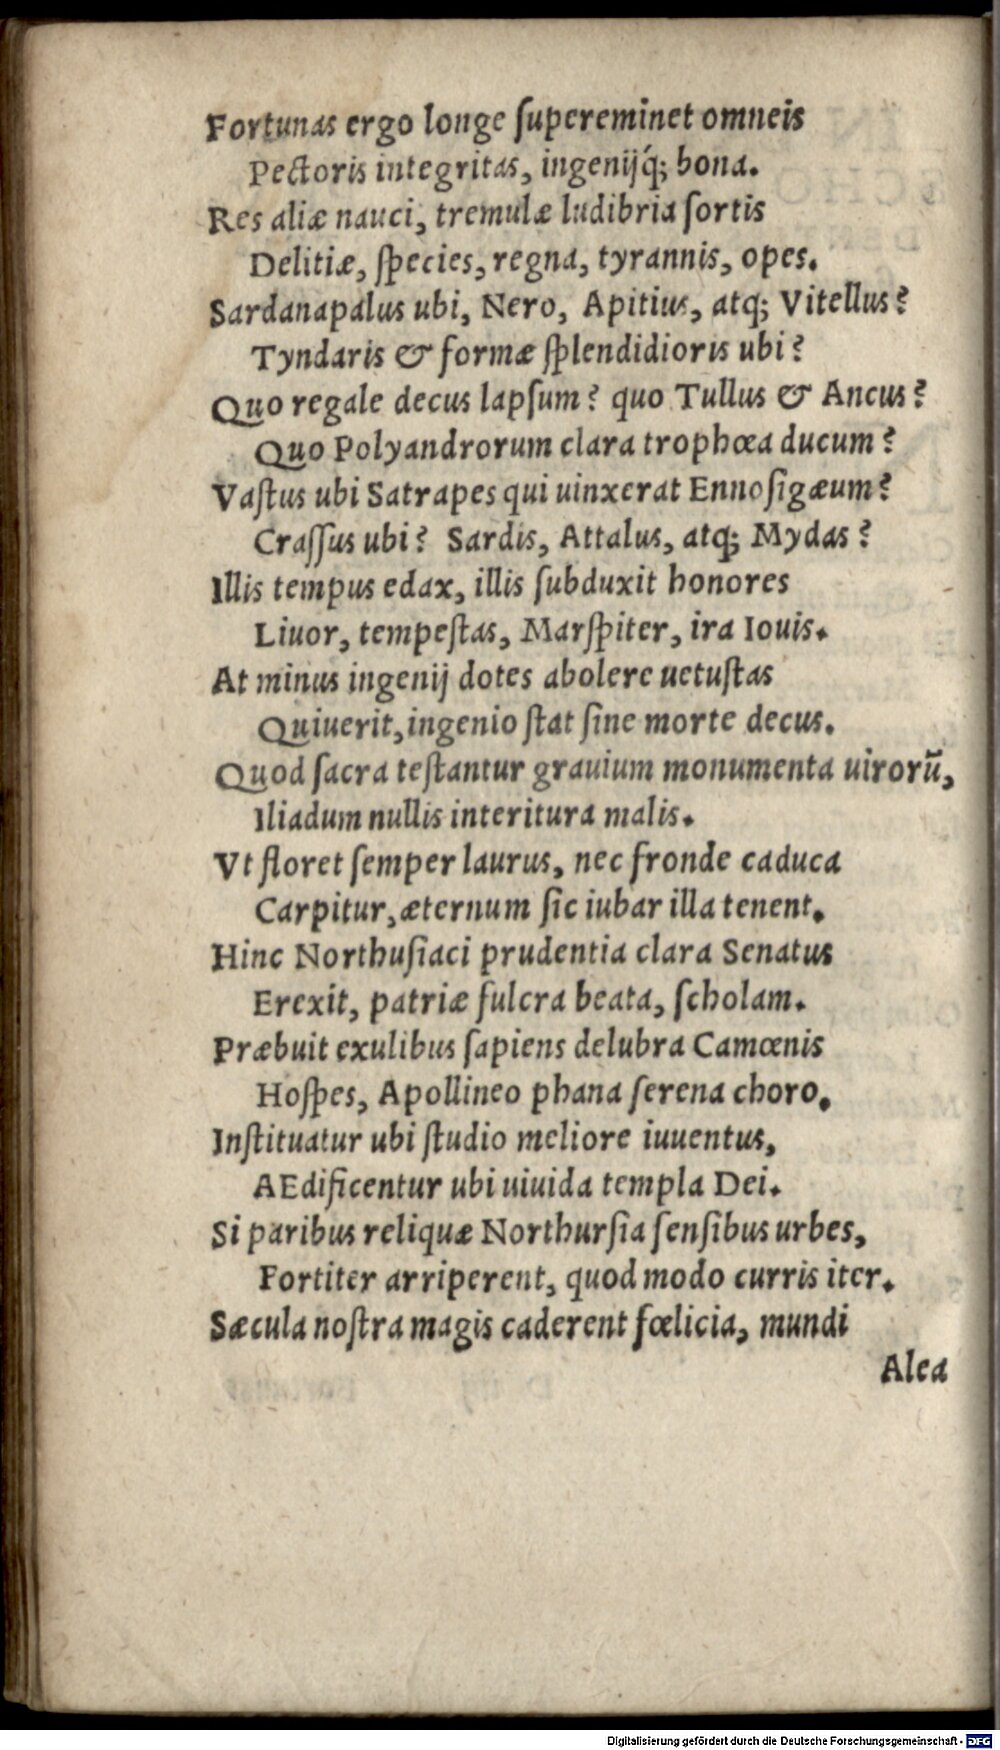 Fortunas ergo longe ſupereminet omneis
Pectoris integritas, ingenijq́; bona.
Res aliæ nauci, tremulæ ludibria ſortis
Delitiæ, ſpecies, regna, tyrannis, opes.
Sardanapalus ubi, Nero, Apitius, atq; Vitellus?
Tyndaris & formæ ſplendidioris ubi?
Quo regale decus lapſum? quo Tullus & Ancus?
Quo Polyandrorum clara trophœa ducum?
Vaſtus ubi Satrapes qui uinxerat Ennoſigæum?
Craſſus ubi? Sardis, Attalus, atq; Mydas?
Illis tempus edax, illis ſubduxit honores
Liuor, tempeſtas, Marſpiter, ira Iouis.
At minus ingenij dotes abolere uetuſtas
Quiuerit, ingenio ſtat ſine morte decus.
Quod ſacra teſtantur grauium monumenta uirorũ,
Iliadum nullis interitura malis.
Vt floret ſemper laurus, nec fronde caduca
Carpitur, æternum ſic iubar illa tenent.
Hinc Northuſiaci prudentia clara Senatus
Erexit, patriæ fulcra beata, ſcholam.
Præbuit exulibus ſapiens delubra Camœnis
Hoſpes, Apollineo phana ſerena choro.
Inſtituatur ubi ſtudio meliore iuuentus,
AEdificentur ubi uiuida templa Dei.
Si paribus reliquæ Northurſia ſenſibus urbes,
Fortiter arriperent, quod modo curris iter.
Sæcula noſtra magis caderent fœlicia, mundi
Alea
Digitalisierung gefördert durch die Deutsche Forschungsgemeinschaft - DFG